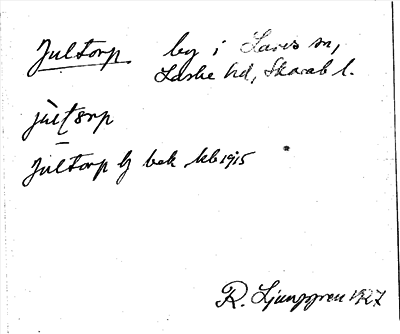 Jultorp by i Larvs sn,
Laske hd, Skarab l.
Jultorp lj bek kb 1915
R. Ljunggren 1927